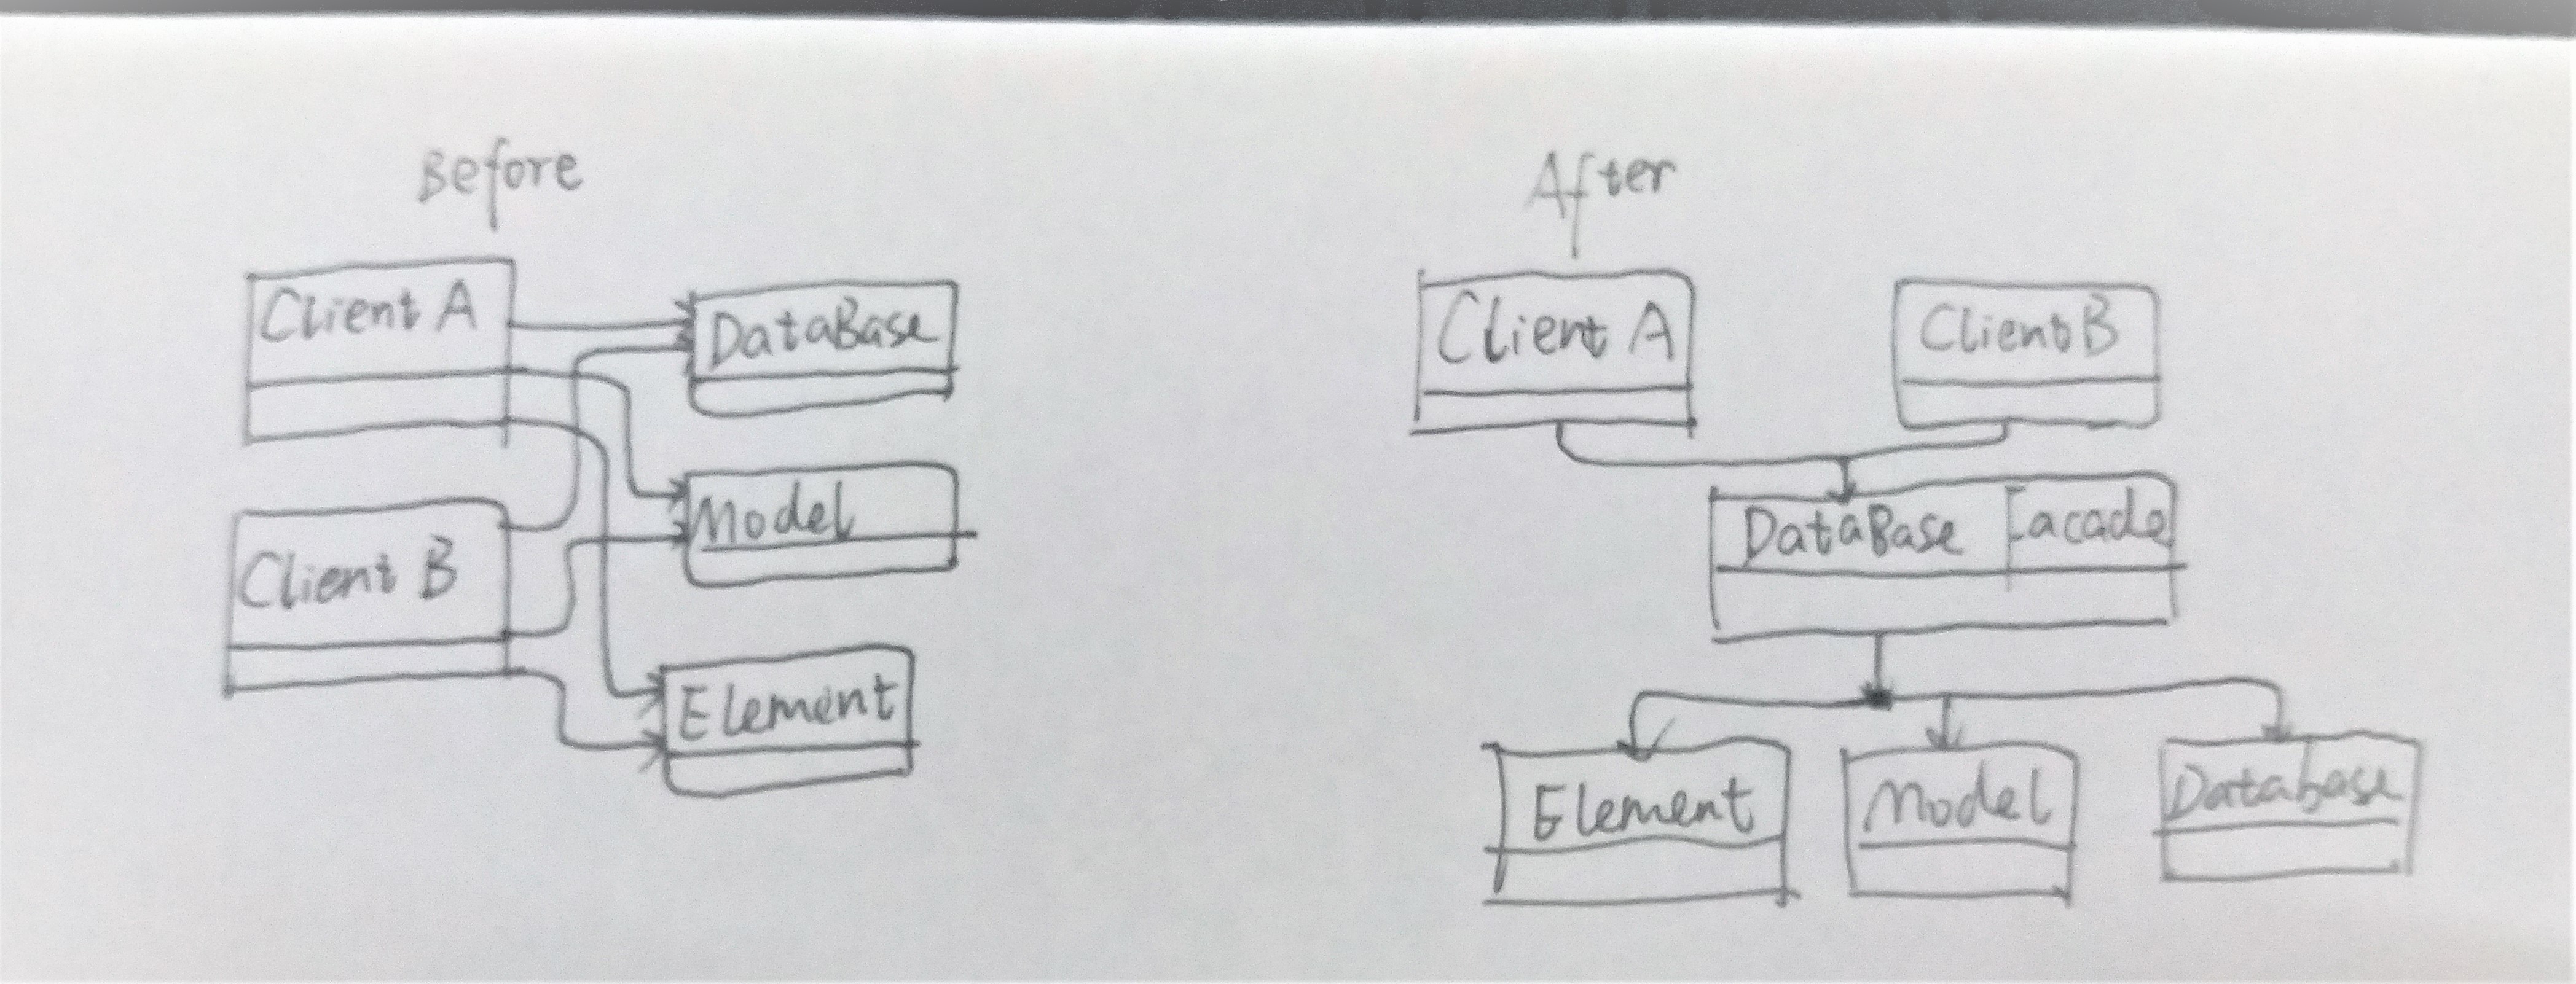 Before
Client A
DataBase
Model
Client B
Element
After
Client A
Client B
DataBase Facade
Element
Model
Database